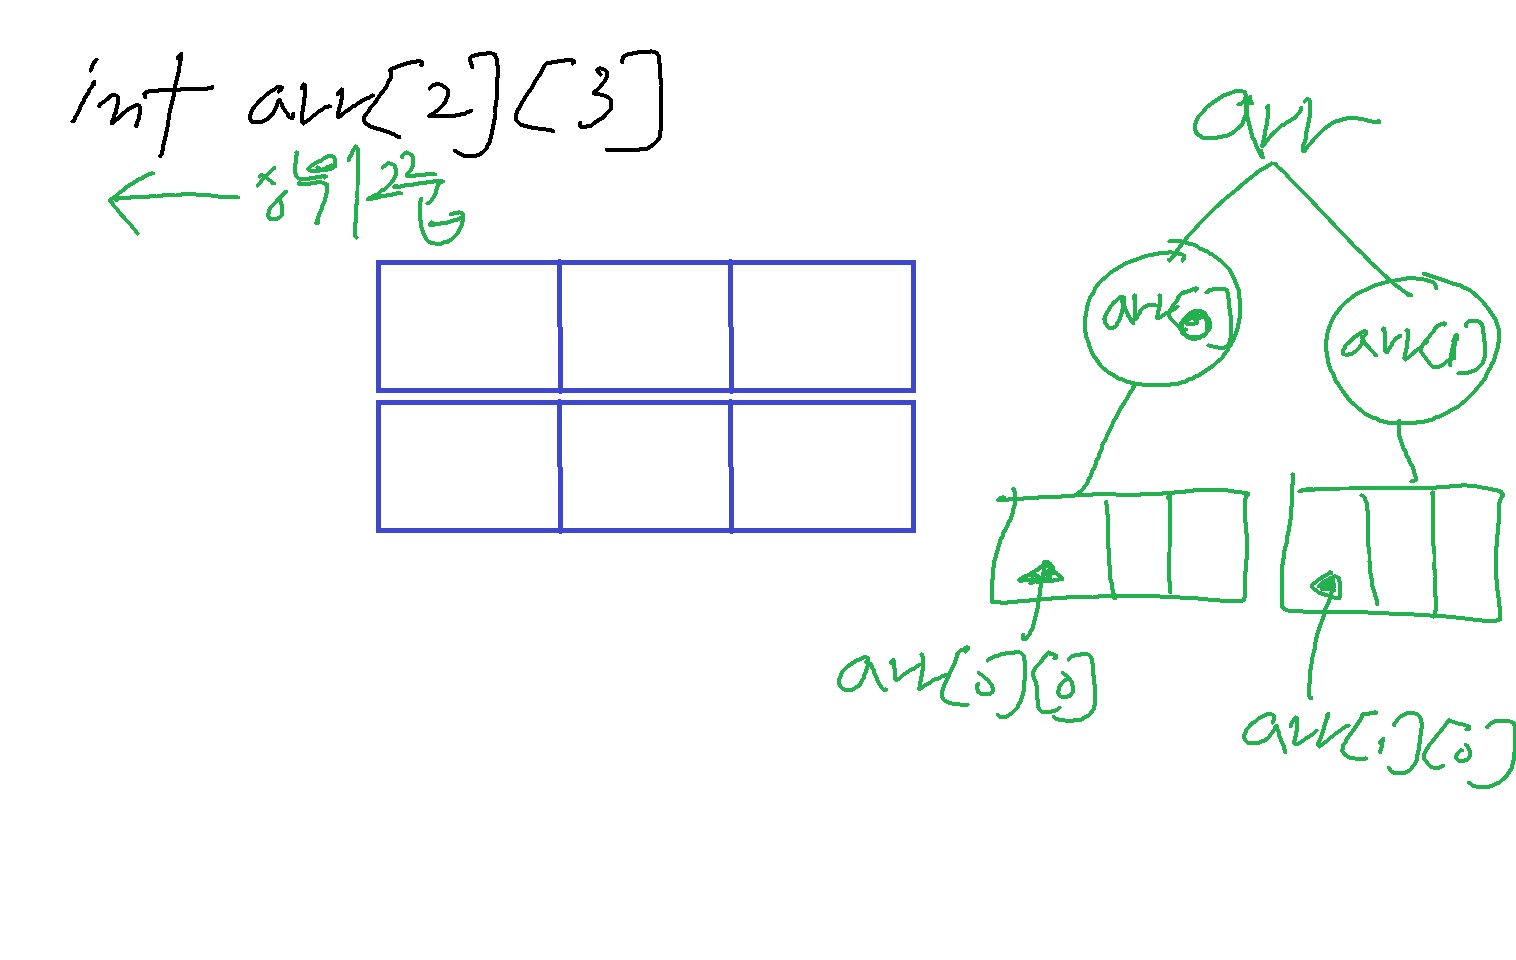 int arr[2][3]
arr
arr[0]
arr[1]
arr[0][0]
arr[1][0]